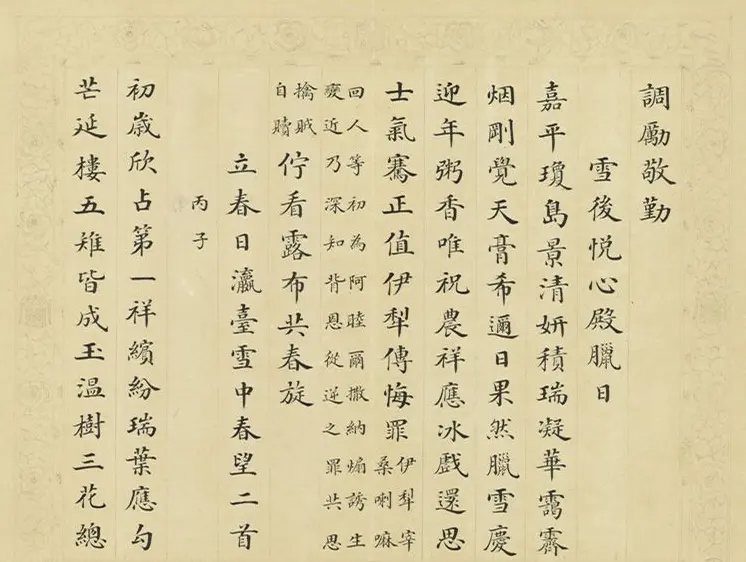 調勵敬勤
雪後悅心殿臘日
嘉平瓊島景清妍積瑞凝華靄霽
烟剛覺天膏希邇日果然臘雪慶
迎年粥香唯祝農祥應冰戲還思
士氣騫正值伊犁傳悔罪伊犁宰桑喇嘛
回人等初為阿睦爾撒納煽誘生
變近乃深知背恩從逆之罪共思
擒賊自贖佇看露布共春旋
立春日瀛臺雪中春望二首
丙子
初歲欣占第一祥繽紛瑞葉應勾
芒延樓五雉皆成玉溫樹三花總